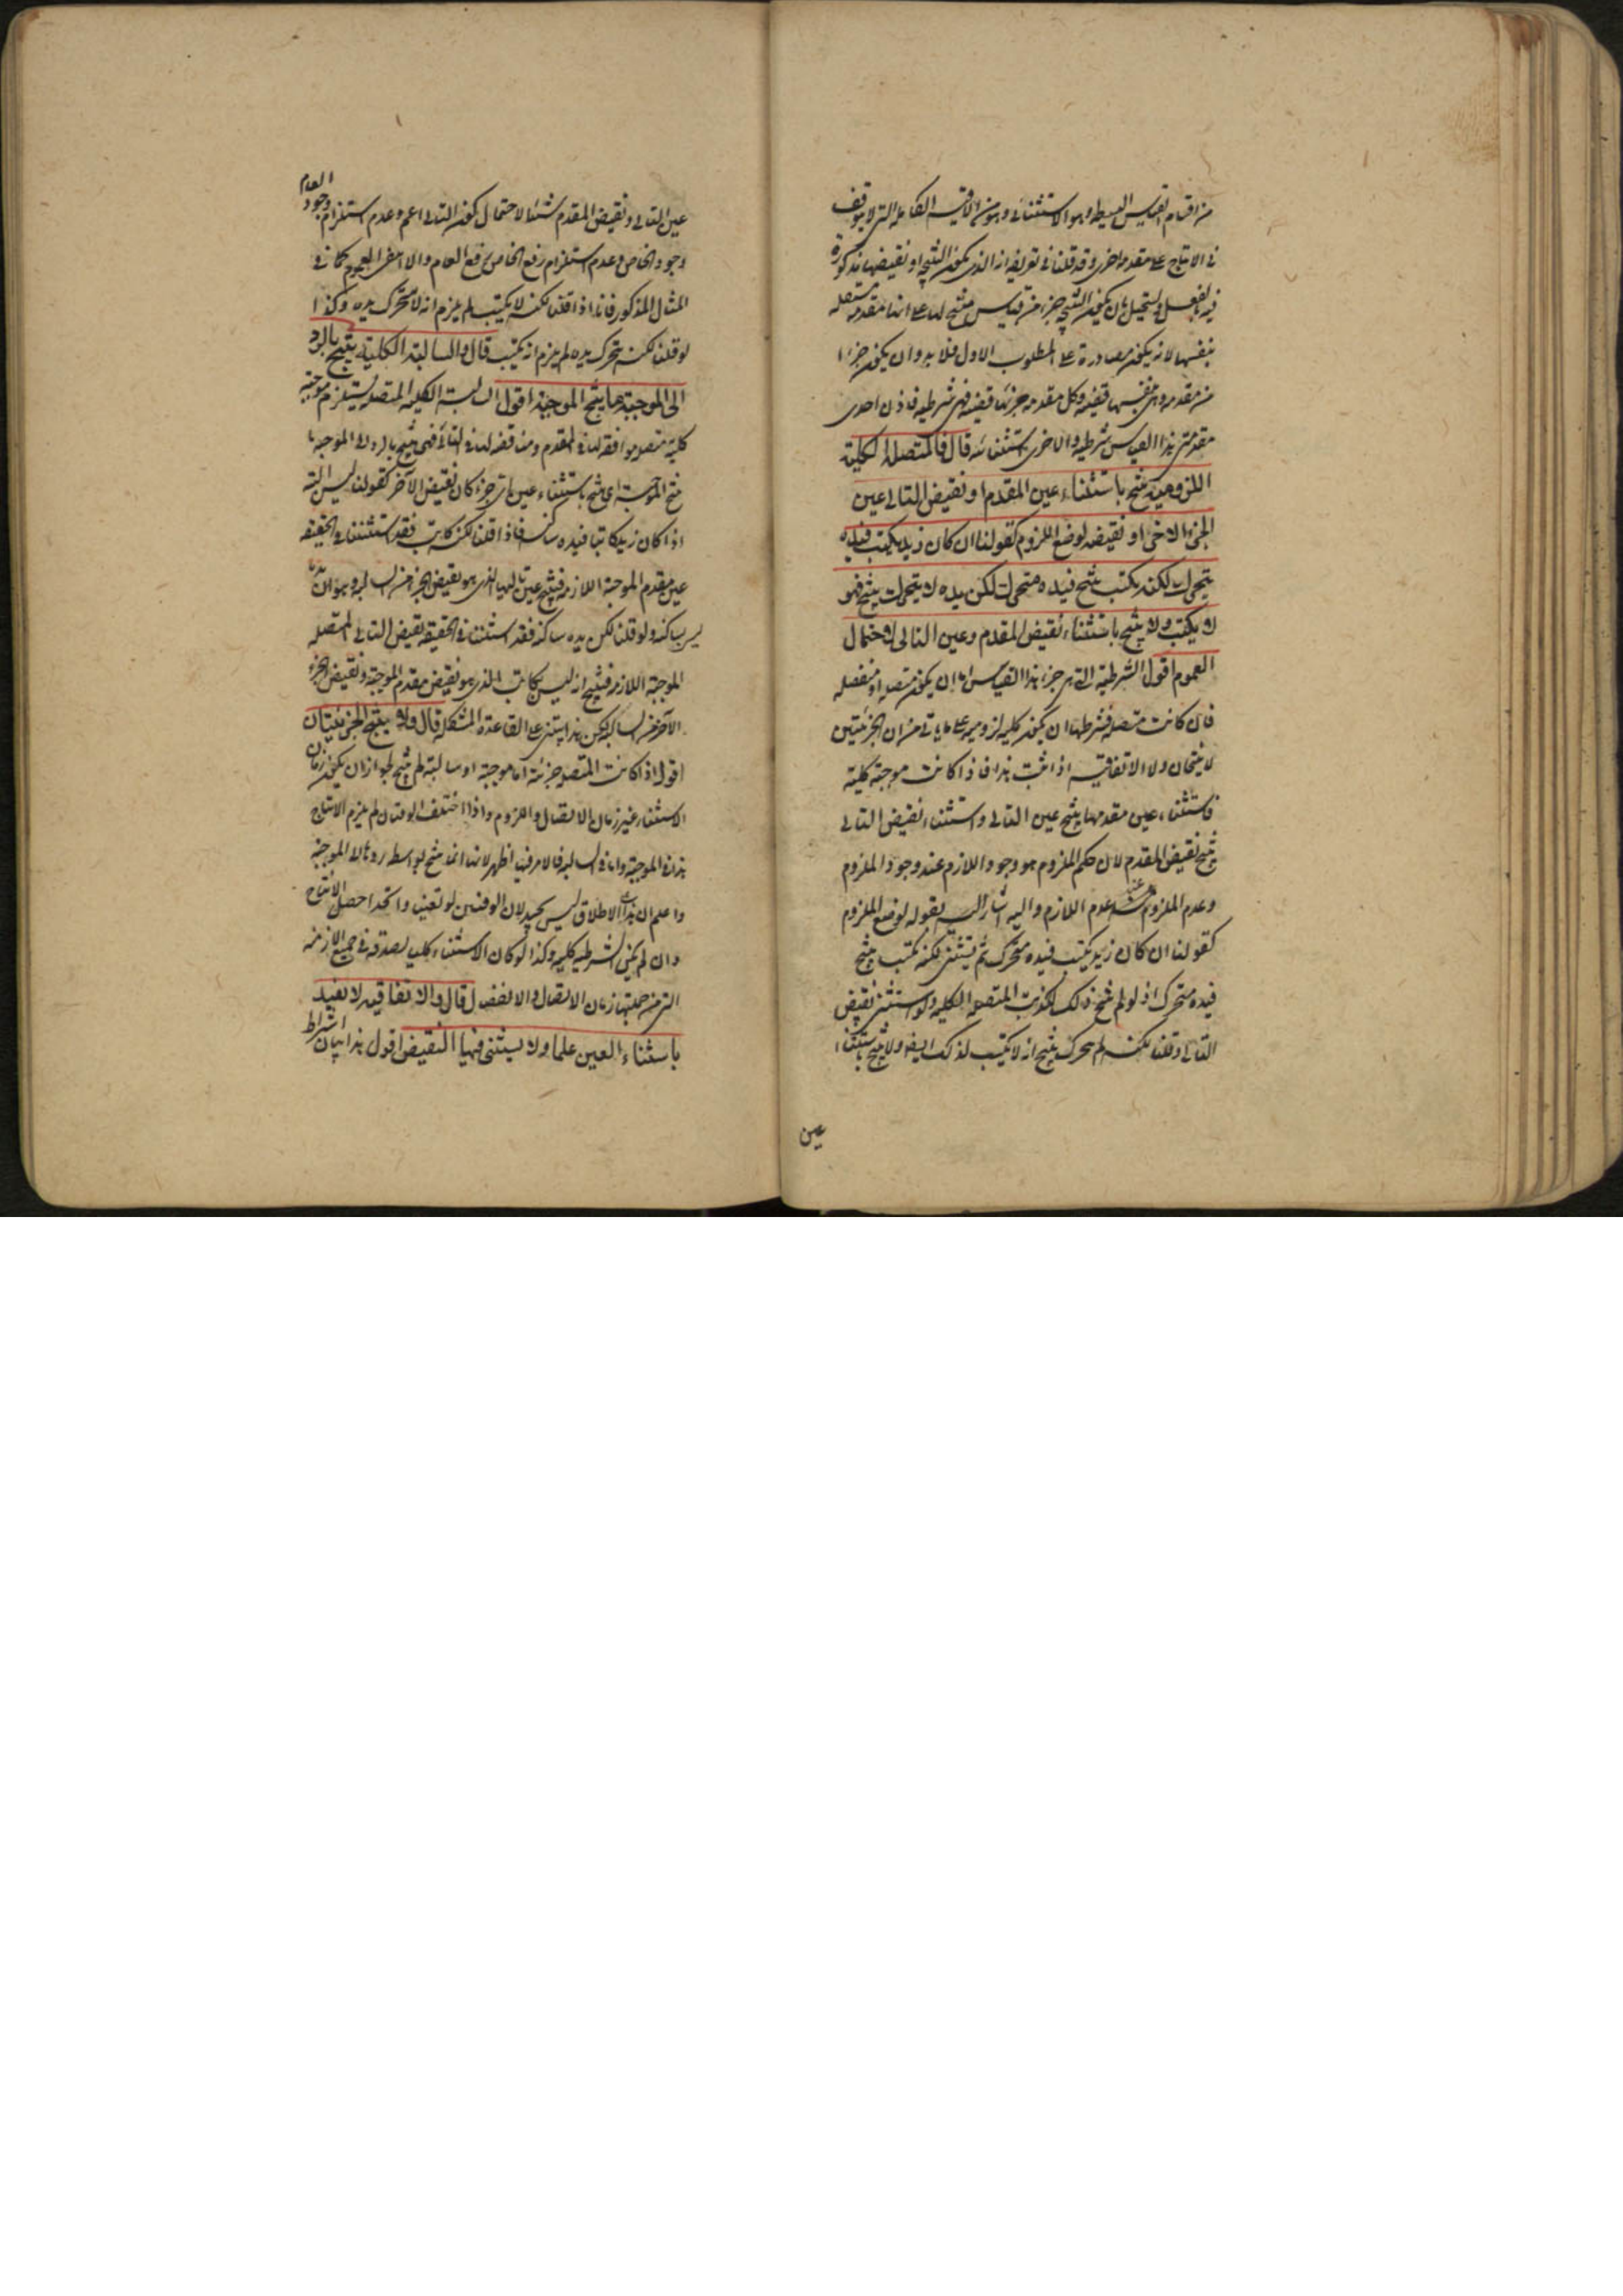 من اقسام القياس البسيط وهو الاستثنائى وهو من الاقيسه الكامله التى لا يتوقف
فى الانتاج على مقدمه اخرى وقد قلنا فى تعريفه انه الذى يكون النتيجه او نقيضها مذكورة
فيه بالفعل ويستحيل ان يكون النتيجه جزءا من قياس منتج لها على انها مقدمه مستقله
بنفسها لانه يكون مصادرة على المطلوب الاول فلا بد وان يكون جزءا
من مقدمه وهى بنفسها قضيه وكل مقدمه جزئها قضيه فهى شرطيه فاذن احدى
مقدمتى هذا القياس شرطيه والاخرى استثنائه قال فالمتصله الكلية
اللزوميه ينتج باستثناء عين المقدم او نقيض التالى عين
الجزء الاخر او نقيضه لوضع الملزوم كقولنا ان كان زيد يكتب فيده
يتحرك لكنه يكتب ينتج فيده متحرك لكن يده لا يتحرك ينتج فهو
لا يكتب ولا ينتج باستثناء نقيض المقدم وعين التالى لاحتمال
العموم اقول الشرطية التى هى جزء هذا القياس اما ان يكون متصله او منفصله
فان كانت متصله فشرطها ان يكون كليه لزوميه على ما ياتى من ان الجزئيتين
لا ينتجان ولا الاتفاقيه اذا ثبت هذا فاذا كانت موجبة كلية
فاستثناء عين مقدمها ينتج عين التالى واستثناء نقيض التالى
ينتج نقيض المقدم لان حكم الملزوم هو وجود اللازم عند وجود الملزوم
وعدم الملزوم عند عدم اللازم واليه اشار اليه بقوله لوضع الملزوم
كقولنا ان كان زيد يكتب فيده متحرك ثم يستثنى لكنه يكتب ينتج
فيده متحرك اذ لو لم ينتج ذلك لكذبت المتصله الكليه ولو استثنى نقيض
التالى وقلنا لكنه لم يتحرك ينتج انه لا يكتب لذلك ايضا ولا ينتج باستثناء
عين
عين التالى ونقيض المقدم شيئا لاحتمال كون التالى اعم وعدم استلزام وجود العام
وجود الخاص وعدم استلزام رفع الخاص رفع العام والا لم يبق العموم كما فى
المثال المذكور فانا اذا قلنا لكنه لا يكتب لم يلزم انه لا متحرك يده وكذا
لو قلنا لكنه يتحرك يده لم يلزم انه يكتب قال والسالبة الكلية ينتج بالرد
الى الموجبة ما ينتج الموجبة اقول السالبة الكليه المتصله يستلزم موجبة
كليه متصله موافقه لها فى المقدم ومناقضه لها فى التالى فهى ينتج بالرد الى الموجبه ما
ينتج الموجبة اى ينتج باستثناء عين اى جزء كان نقيض الآخر كقولنا ليس البتة
اذا كان زيد كاتبا فيده ساكنه فاذا قلنا لكنه كاتب فقد استثنينا فى الحقيقه
عين مقدم الموجبة اللازمه فينتج عين تاليها الذى هو نقيض الجزء من السالبه وهو ان يده
ليس ساكنه ولو قلنا لكن يده ساكنه فقد استثنينا فى الحقيقه نقيض التالى المتصله
الموجبة اللازمه فينتج انه ليس بكاتب الذى هو نقيض مقدم الموجبة ونقيض الجزء
الآخر من السالبه لكن هذا يبتنى على القاعدة المشكله قال ولا ينتج الجزئيتان
اقول اذا كانت المتصله جزئية اما موجبة او سالبة لم ينتج لجواز ان يكون زمان
الاستثناء غير زمان الاتصال واللزوم واذا اختلف الوقتان لم يلزم الانتاج
هذا فى الموجبة واما فى السالبه فالامر فيها اظهر لانها انما ينتج بواسطه ردها الى الموجبة
واعلم ان هذا الاطلاق ليس بجيد لان الوقتين لو تعينا واتحدا حصل الانتاج
وان لم يكن الشرطيه كليه وكذا لو كان الاستثناء كليا لصدقه فى جميع الازمنه
التى من جملتها زمان الاتصال والانفصال قال والاتفاقيه لا يفيد
باستثناء العين علما ولا يستثنى فيها النقيض اقول هذا بيان اشتراط